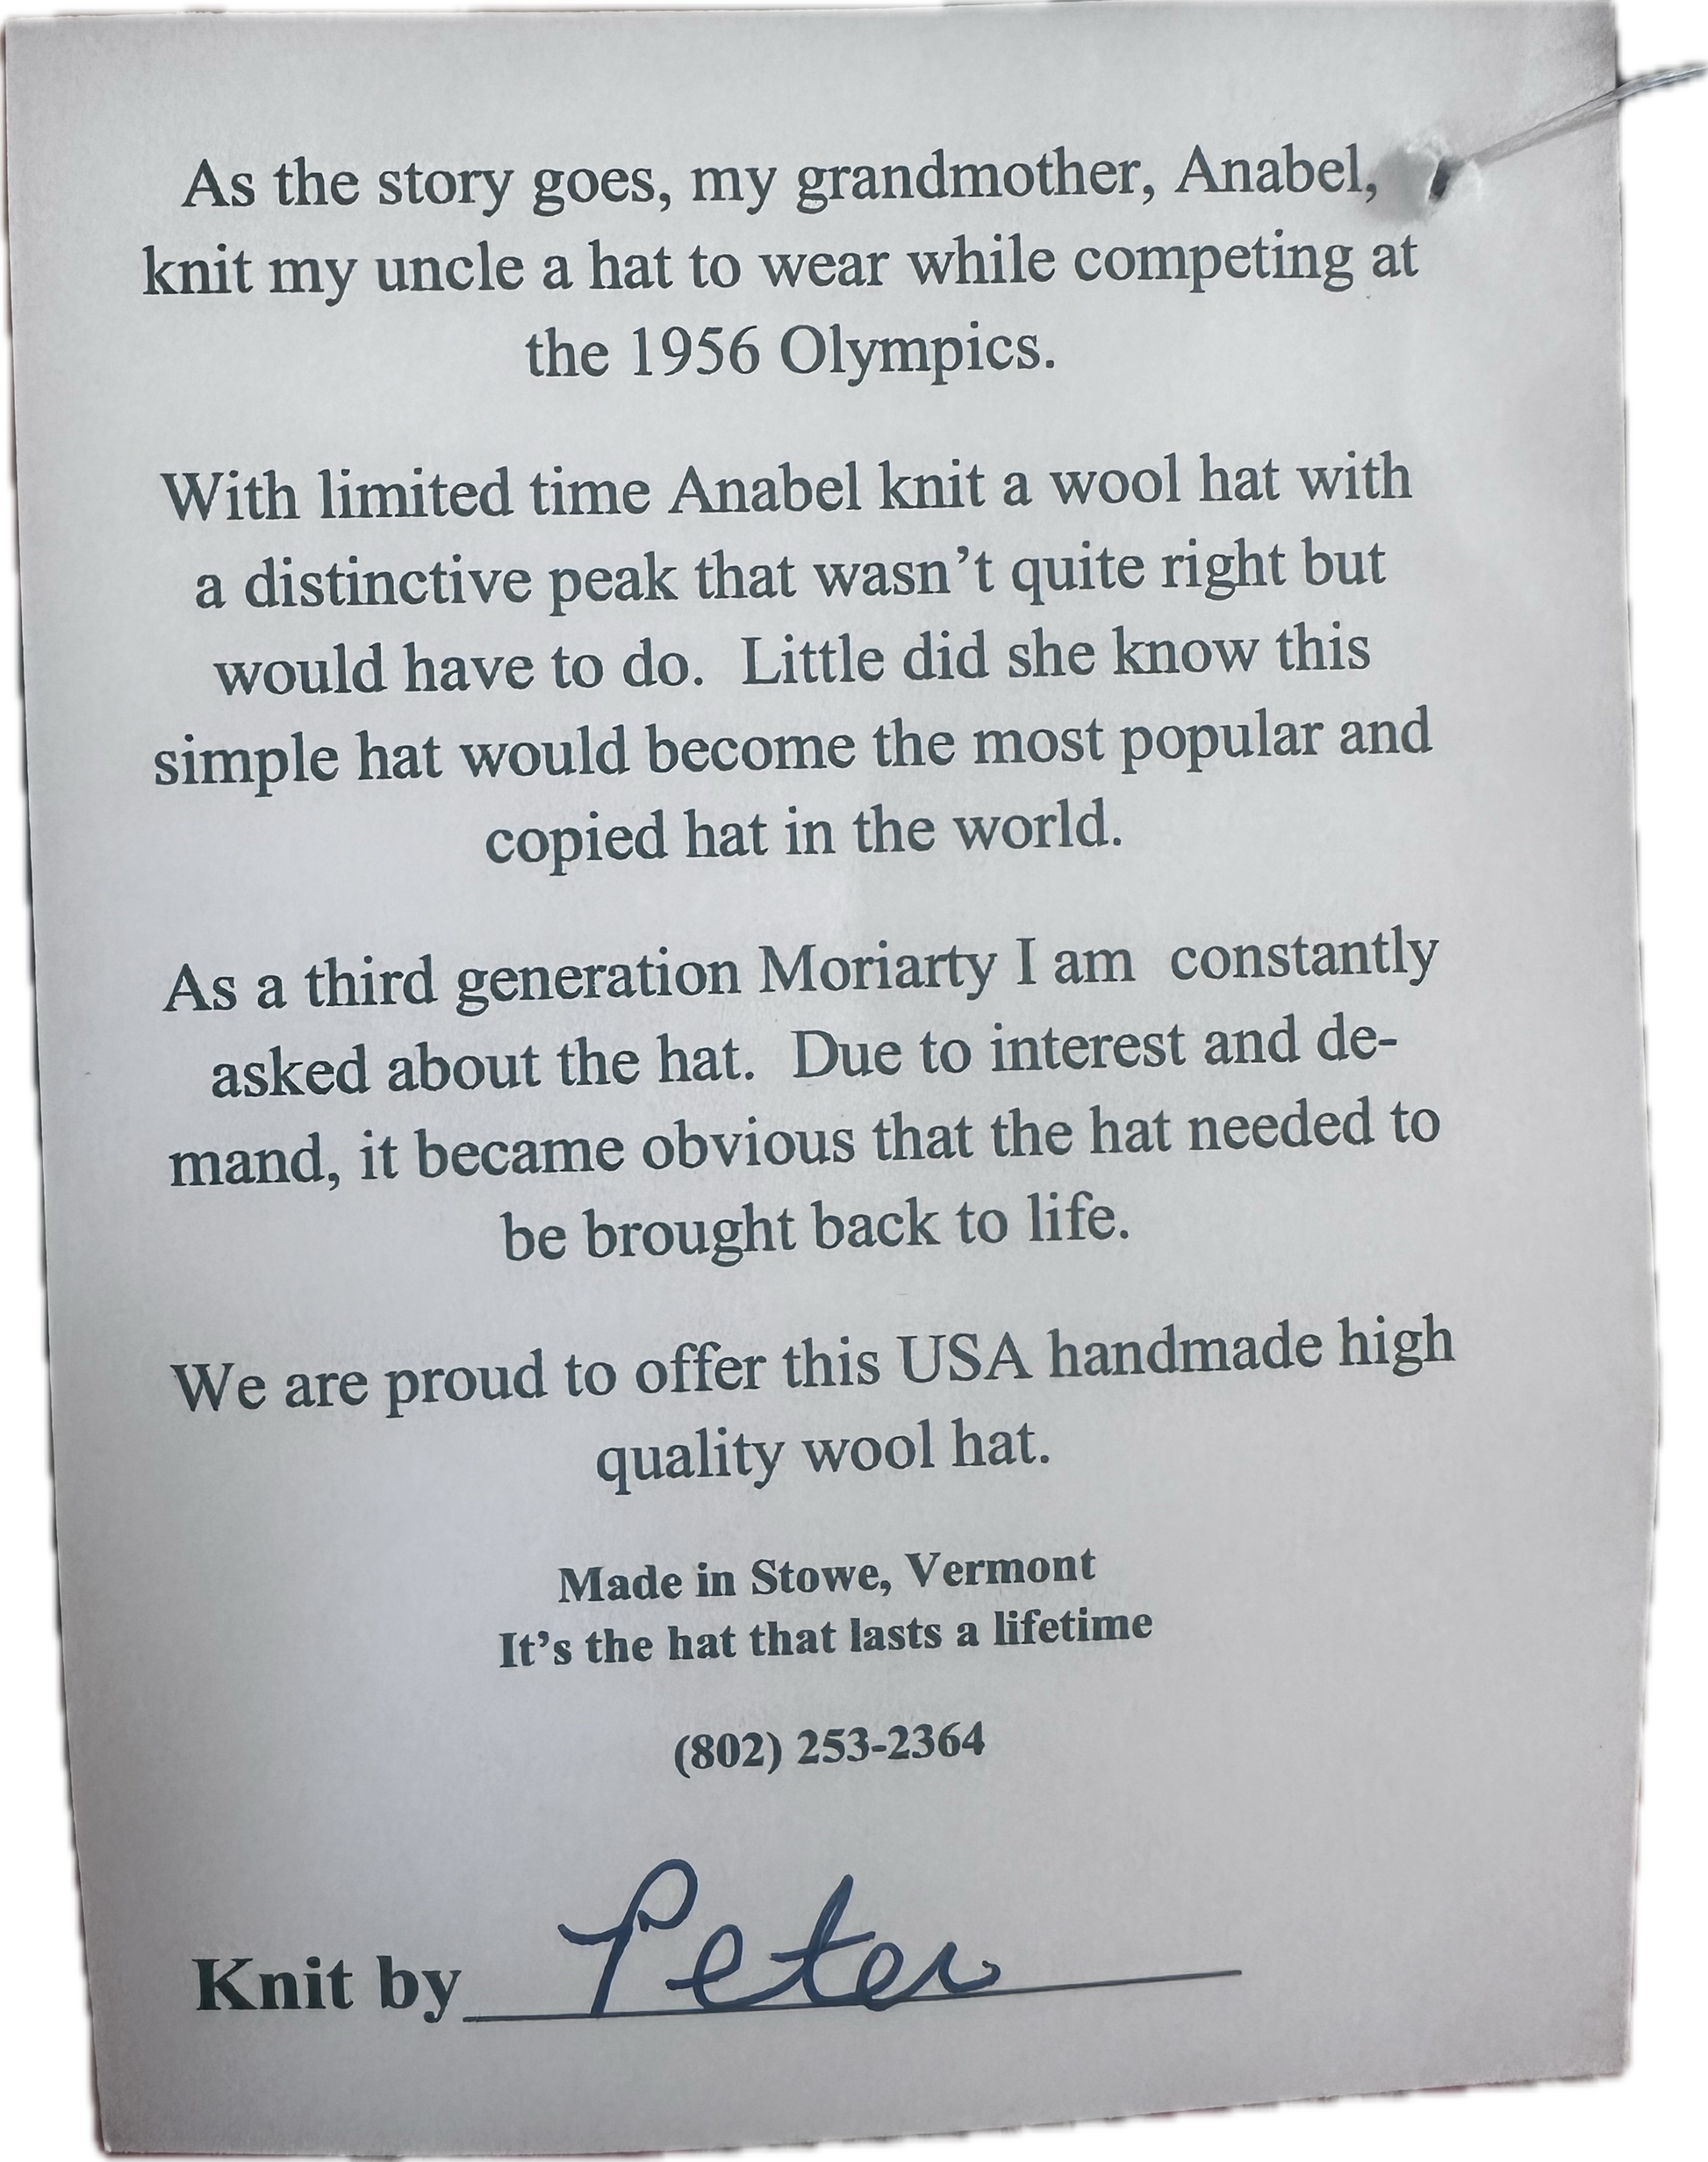 As the story goes, my grandmother, Anabel,
knit my uncle a hat to wear while competing at
the 1956 Olympics.
With limited time Anabel knit a wool hat with
a distinctive peak that wasn’t quite right but
would have to do.  Little did she know this
simple hat would become the most popular and
copied hat in the world.
As a third generation Moriarty I am  constantly
asked about the hat.  Due to interest and de-
mand, it became obvious that the hat needed to
be brought back to life.
We are proud to offer this USA handmade high
quality wool hat.
Made in Stowe, Vermont
It’s the hat that lasts a lifetime
(802) 253-2364
Knit by Peter